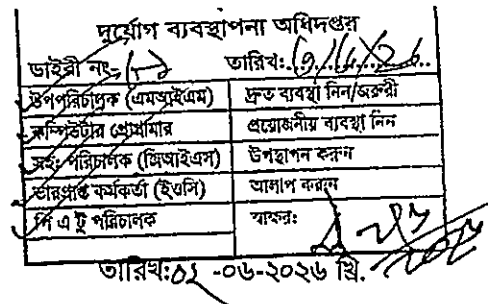 দুর্যোগ ব্যবস্থাপনা অধিদপ্তর
ডাইরী নং- তারিখ:
উপপরিচালক (এমআইএম) দ্রুত ব্যবস্থা নিন/জরুরী
কম্পিউটার প্রোগ্রামার প্রয়োজনীয় ব্যবস্থা নিন
সহঃ পরিচালক (জিআইএস) উপস্থাপন করুন
ভারপ্রাপ্ত কর্মকর্তা (ইওসি) আলাপ করুন
পি এ টু পরিচালক স্বাক্ষর:
তারিখ:০২ -০৬-২০২৬ খ্রি.